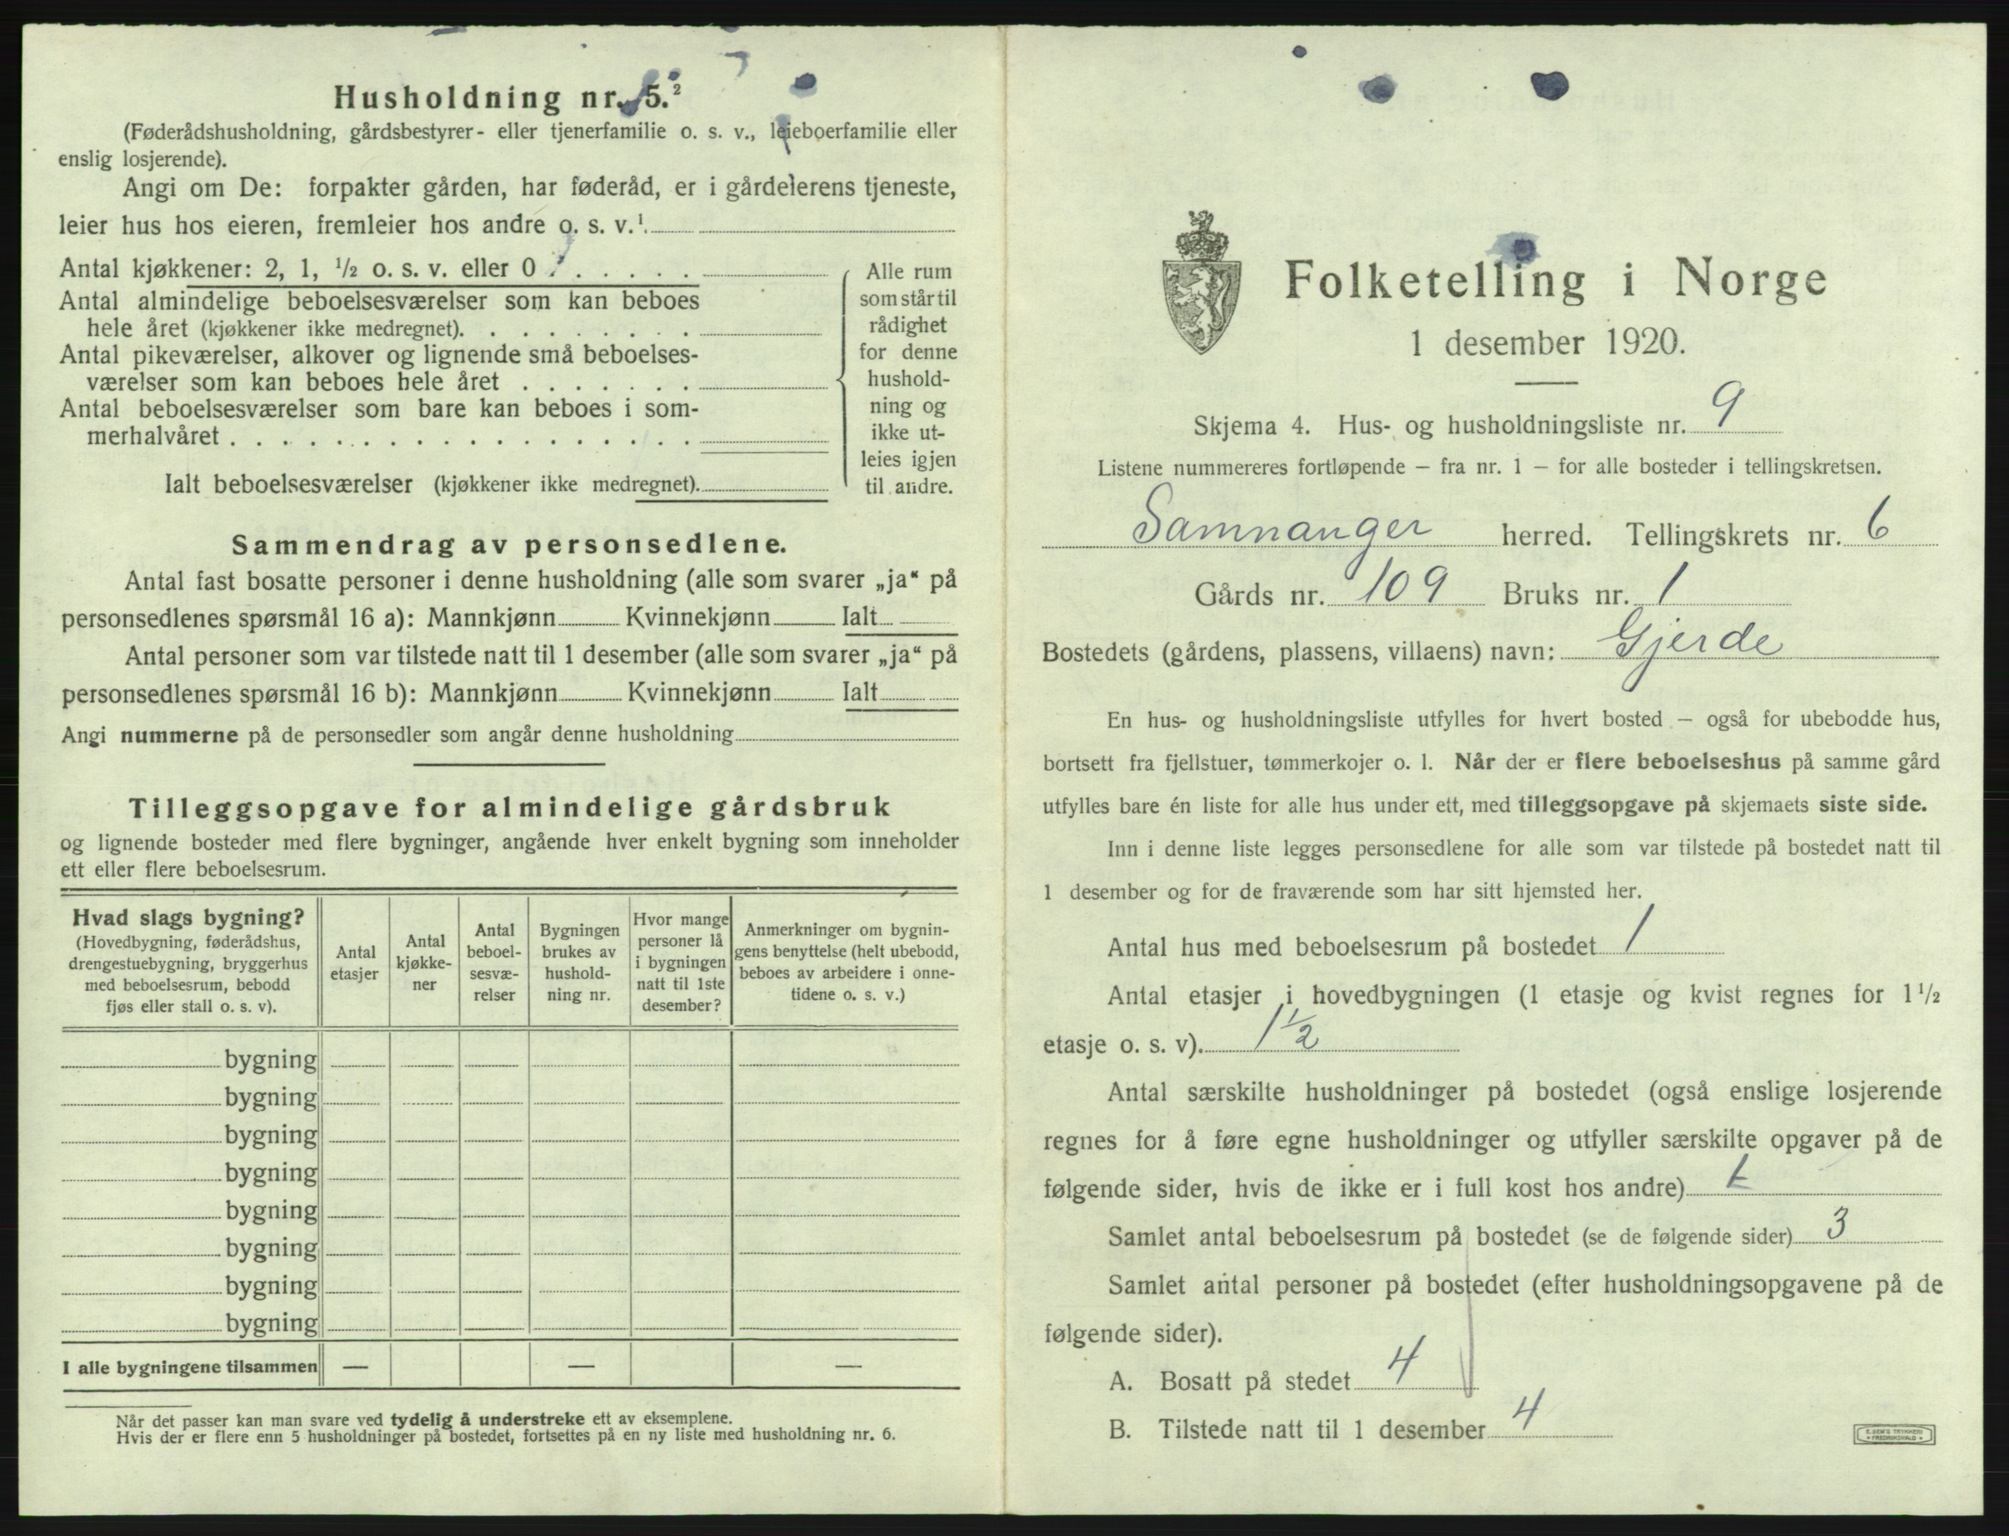 Husholdning nr. 5.²
(Føderådshusholdning, gårdsbestyrer- eller tjenerfamilie o. s. v., leieboerfamilie eller
enslig losjerende).
Angi om De: forpakter gården, har føderåd, er i gårdeierens tjeneste,
leier hus hos eieren, fremleier hos andre o. s. v.¹
Antal kjøkkener: 2, 1, ½ o. s. v. eller 0
Antal almindelige beboelsesværelser som kan beboes
hele året (kjøkkener ikke medregnet).
Antal pikeværelser, alkover og lignende små beboelses-
værelser som kan beboes hele året
Antal beboelsesværelser som bare kan beboes i som-
merhalvåret
Ialt beboelsesværelser (kjøkkener ikke medregnet).
Alle rum
som står til
rådighet
for denne
hushold-
ning og
ikke ut-
leies igjen
til andre.
Sammendrag av personsedlene.
Antal fast bosatte personer i denne husholdning (alle som svarer „ja“ på
personsedlenes spørsmål 16 a): Mannkjønn Kvinnekjønn Ialt
Antal personer som var tilstede natt til 1 desember (alle som svarer „ja“ på
personsedlenes spørsmål 16 b): Mannkjønn Kvinnekjønn Ialt
Angi nummerne på de personsedler som angår denne husholdning
Tilleggsopgave for almindelige gårdsbruk
og lignende bosteder med flere bygninger, angående hver enkelt bygning som inneholder
ett eller flere beboelsesrum.
Hvad slags bygning?
(Hovedbygning, føderådshus,
drengestuebygning, bryggerhus
med beboelsesrum, bebodd
fjøs eller stall o. s. v).
Antal
etasjer
Antal
kjøkke-
ner
Antal
beboel-
sesvæ-
relser
Bygningen
brukes av
hushold-
ning nr.
Hvor mange
personer lå
i bygningen
natt til 1ste
desember?
Anmerkninger om bygnin-
gens benyttelse (helt ubebodd,
beboes av arbeidere i onne-
tidene o. s. v.)
bygning
bygning
bygning
bygning
bygning
bygning
bygning
bygning
I alle bygningene tilsammen — — —
Når det passer kan man svare ved tydelig å understreke ett av eksemplene.
Hvis der er flere enn 5 husholdninger på bostedet, fortsettes på en ny liste med husholdning nr. 6.
Folketelling i Norge
1 desember 1920.
Skjema 4. Hus- og husholdningsliste nr. 9
Listene nummereres fortløpende – fra nr. 1 – for alle bosteder i tellingskretsen.
Samnanger herred. Tellingskrets nr. 6
Gårds nr. 109 Bruks nr. 1
Bostedets (gårdens, plassens, villaens) navn: Gjerde
En hus- og husholdningsliste utfylles for hvert bosted – også for ubebodde hus,
bortsett fra fjellstuer, tømmerkojer o. l. Når der er flere beboelseshus på samme gård
utfylles bare én liste for alle hus under ett, med tilleggsopgave på skjemaets siste side.
Inn i denne liste legges personsedlene for alle som var tilstede på bostedet natt til
1 desember og for de fraværende som har sitt hjemsted her.
Antal hus med beboelsesrum på bostedet 1
Antal etasjer i hovedbygningen (1 etasje og kvist regnes for 1½
etasje o. s. v). 1½
Antal særskilte husholdninger på bostedet (også enslige losjerende
regnes for å føre egne husholdninger og utfyller særskilte opgaver på de
følgende sider, hvis de ikke er i full kost hos andre)
Samlet antal beboelsesrum på bostedet (se de følgende sider) 3
Samlet antal personer på bostedet (efter husholdningsopgavene på de
følgende sider).
A. Bosatt på stedet 4
B. Tilstede natt til 1 desember 4